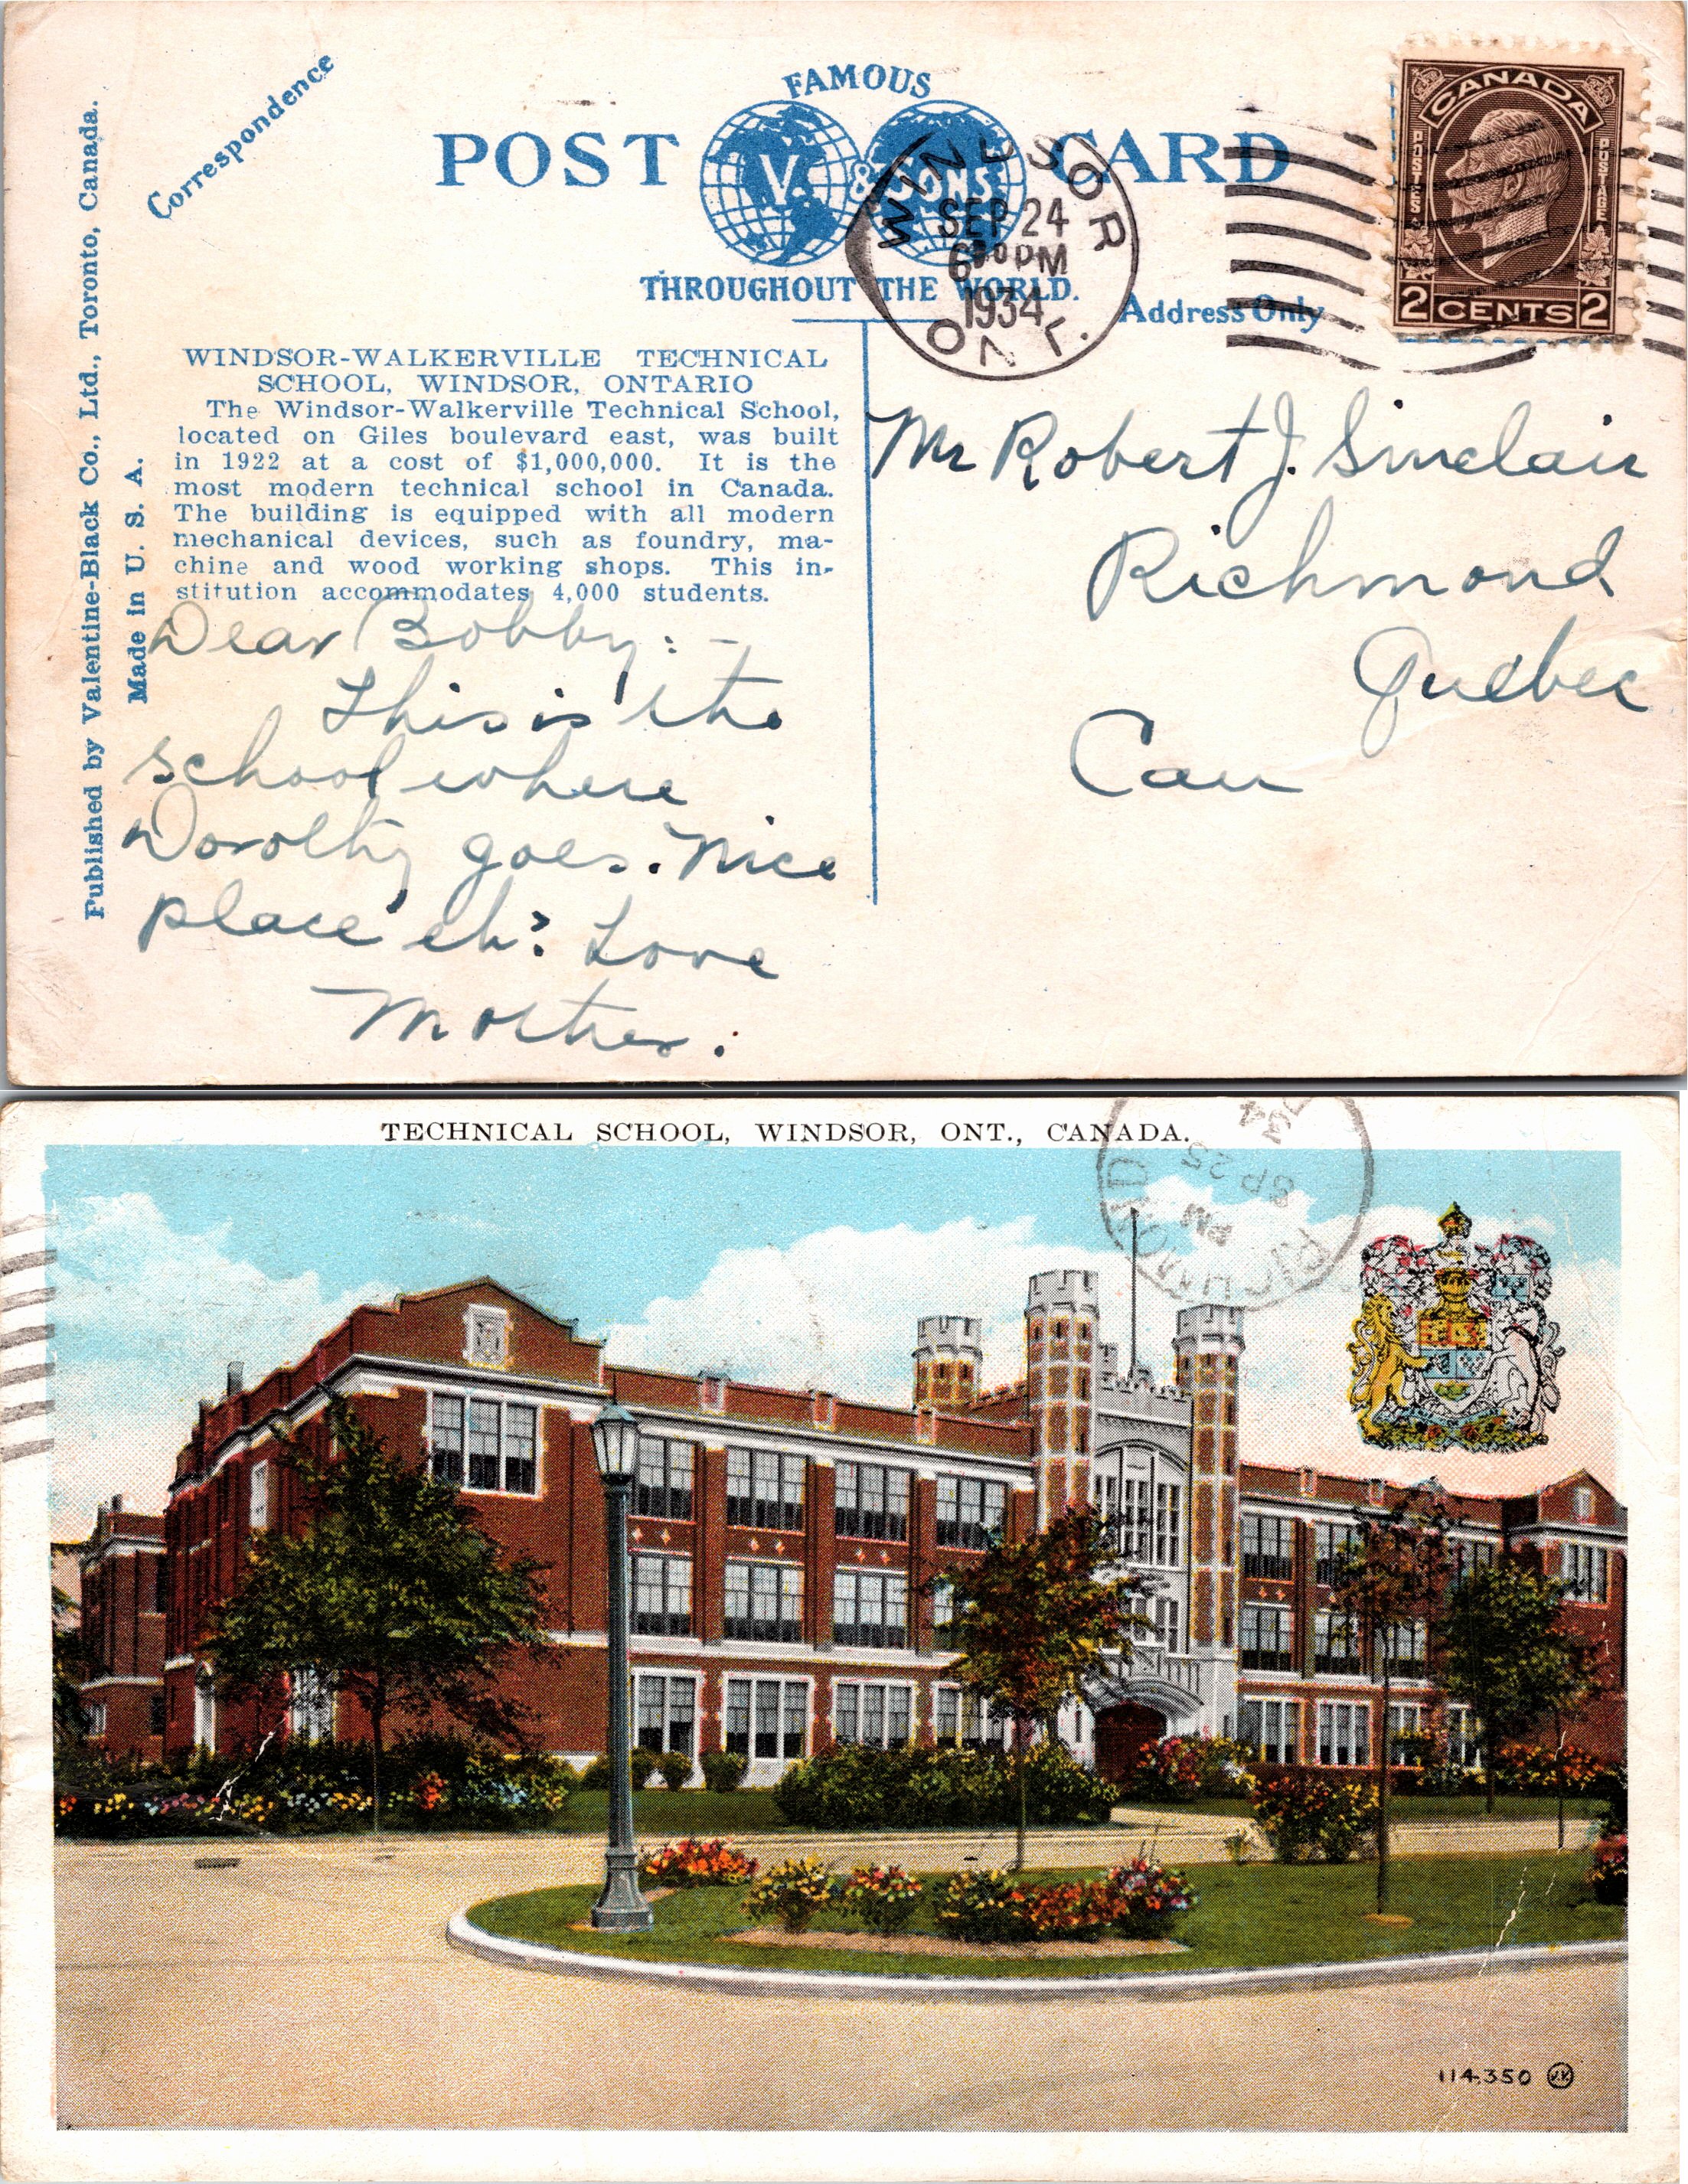 Correspondence
FAMOUS
POST CARD
V. & SONS
THROUGHOUT THE WORLD.
WINDSOR
SEP 24
6 PM
1934
ONT.
CANADA
POSTES POSTAGE
2 CENTS 2
Address Only
Published by Valentine-Black Co., Ltd., Toronto, Canada.
Made in U. S. A.
WINDSOR-WALKERVILLE TECHNICAL
SCHOOL, WINDSOR, ONTARIO
The Windsor-Walkerville Technical School,
located on Giles boulevard east, was built
in 1922 at a cost of $1,000,000. It is the
most modern technical school in Canada.
The building is equipped with all modern
mechanical devices, such as foundry, ma-
chine and wood working shops. This in-
stitution accommodates 4,000 students.
Dear Bobby: -
This is the
school where
Dorothy goes. Nice
place eh? Love
Mother.
Mr Robert J. Sinclair
Richmond
Quebec
Can
TECHNICAL SCHOOL, WINDSOR, ONT., CANADA.
RICHMOND
PM
SP 25
34
114.350 JV